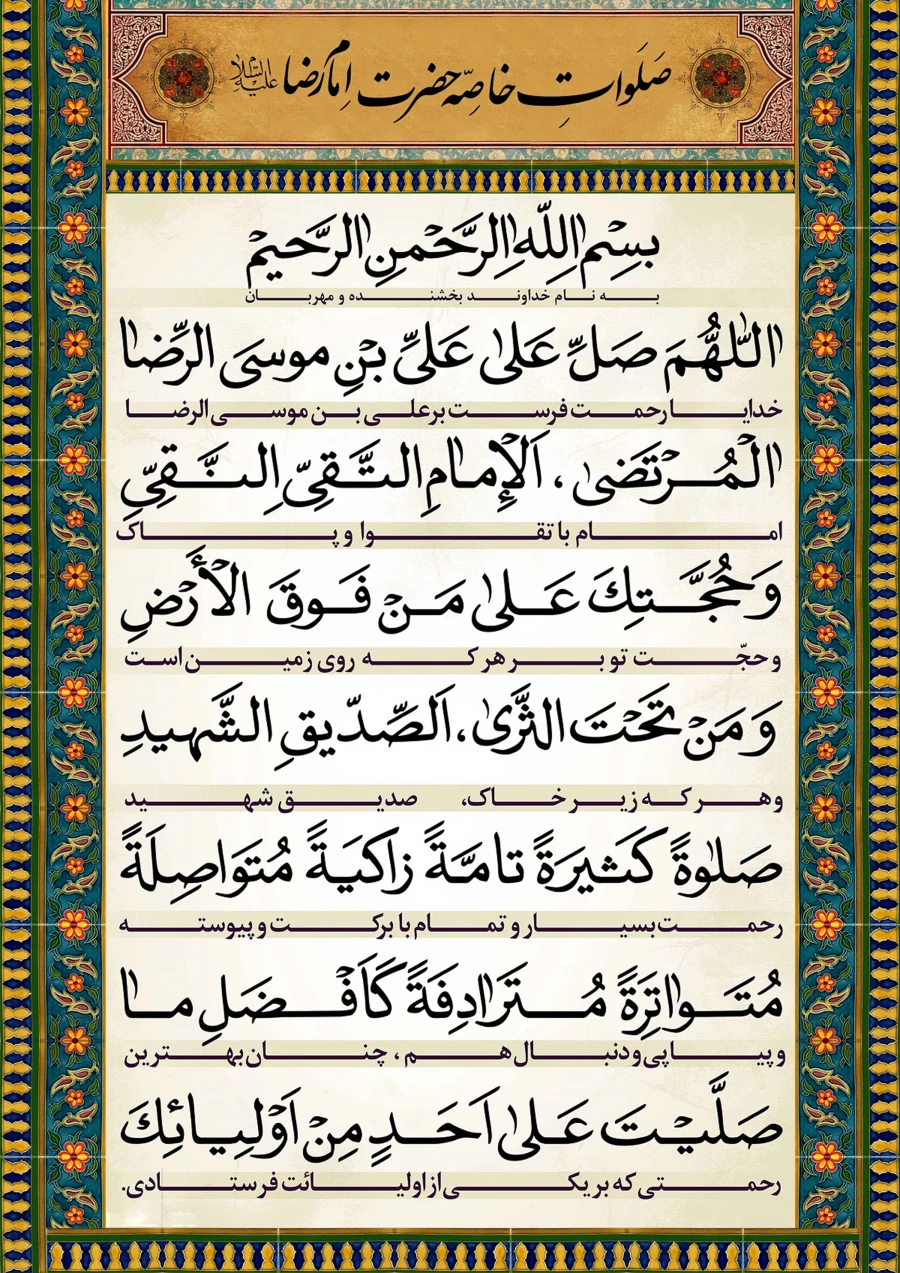 صَلَوات خاصّه حضرت امام رضا علیه السلام
بِسْمِ اللّٰهِ الرَّحْمنِ الرَّحیمْ
به نام خداوند بخشنده و مهربان
اَللّٰهُمَّ صَلِّ عَلیٰ عَلیِّ بْنِ موسَی الرِّضا
خدایا رحمت فرست بر علی بن موسی الرضا
الْمُرْتَضیٰ، اَلْإِمامِ التَّقِیِّ النَّقِیِّ
امام با تقوا و پاک
وَحُجَّتِكَ عَلیٰ مَنْ فَوقَ الْأَرْضِ
و حجّت تو بر هر که روی زمین است
وَ مَنْ تَحْتَ الثَّریٰ، اَلصِّدّیقِ الشَّهیدِ
و هر که زیر خاک، صدیق شهید
صَلٰوةً کَثیرَةً تامَّةً زاکیَةً مُتَواصِلَةً
رحمت بسیار و تمام با برکت و پیوسته
مُتَواتِرَةً مُتَرادِفَةً کَاَفْضَلِ ما
و پیاپی و دنبال هم، چنان بهترین
صَلَّیْتَ عَلیٰ اَحَدٍ مِنْ اَوْلِیائِكَ
رحمتی که بر یکی از اولیائت فرستادی.